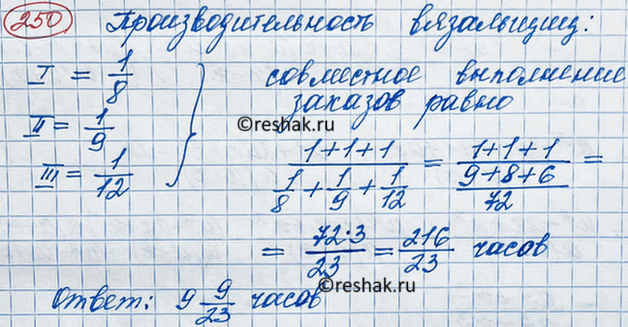 250 Производительность вязальщиц:
I = 1/8
II = 1/9
III = 1/12
совместное выполнение
заказов равно
(1+1+1)/(1/8 + 1/9 + 1/12) = (1+1+1)/((9+8+6)/72) =
= 72·3/23 = 216/23 часов
Ответ: 9 9/23 часов
©reshak.ru
©reshak.ru